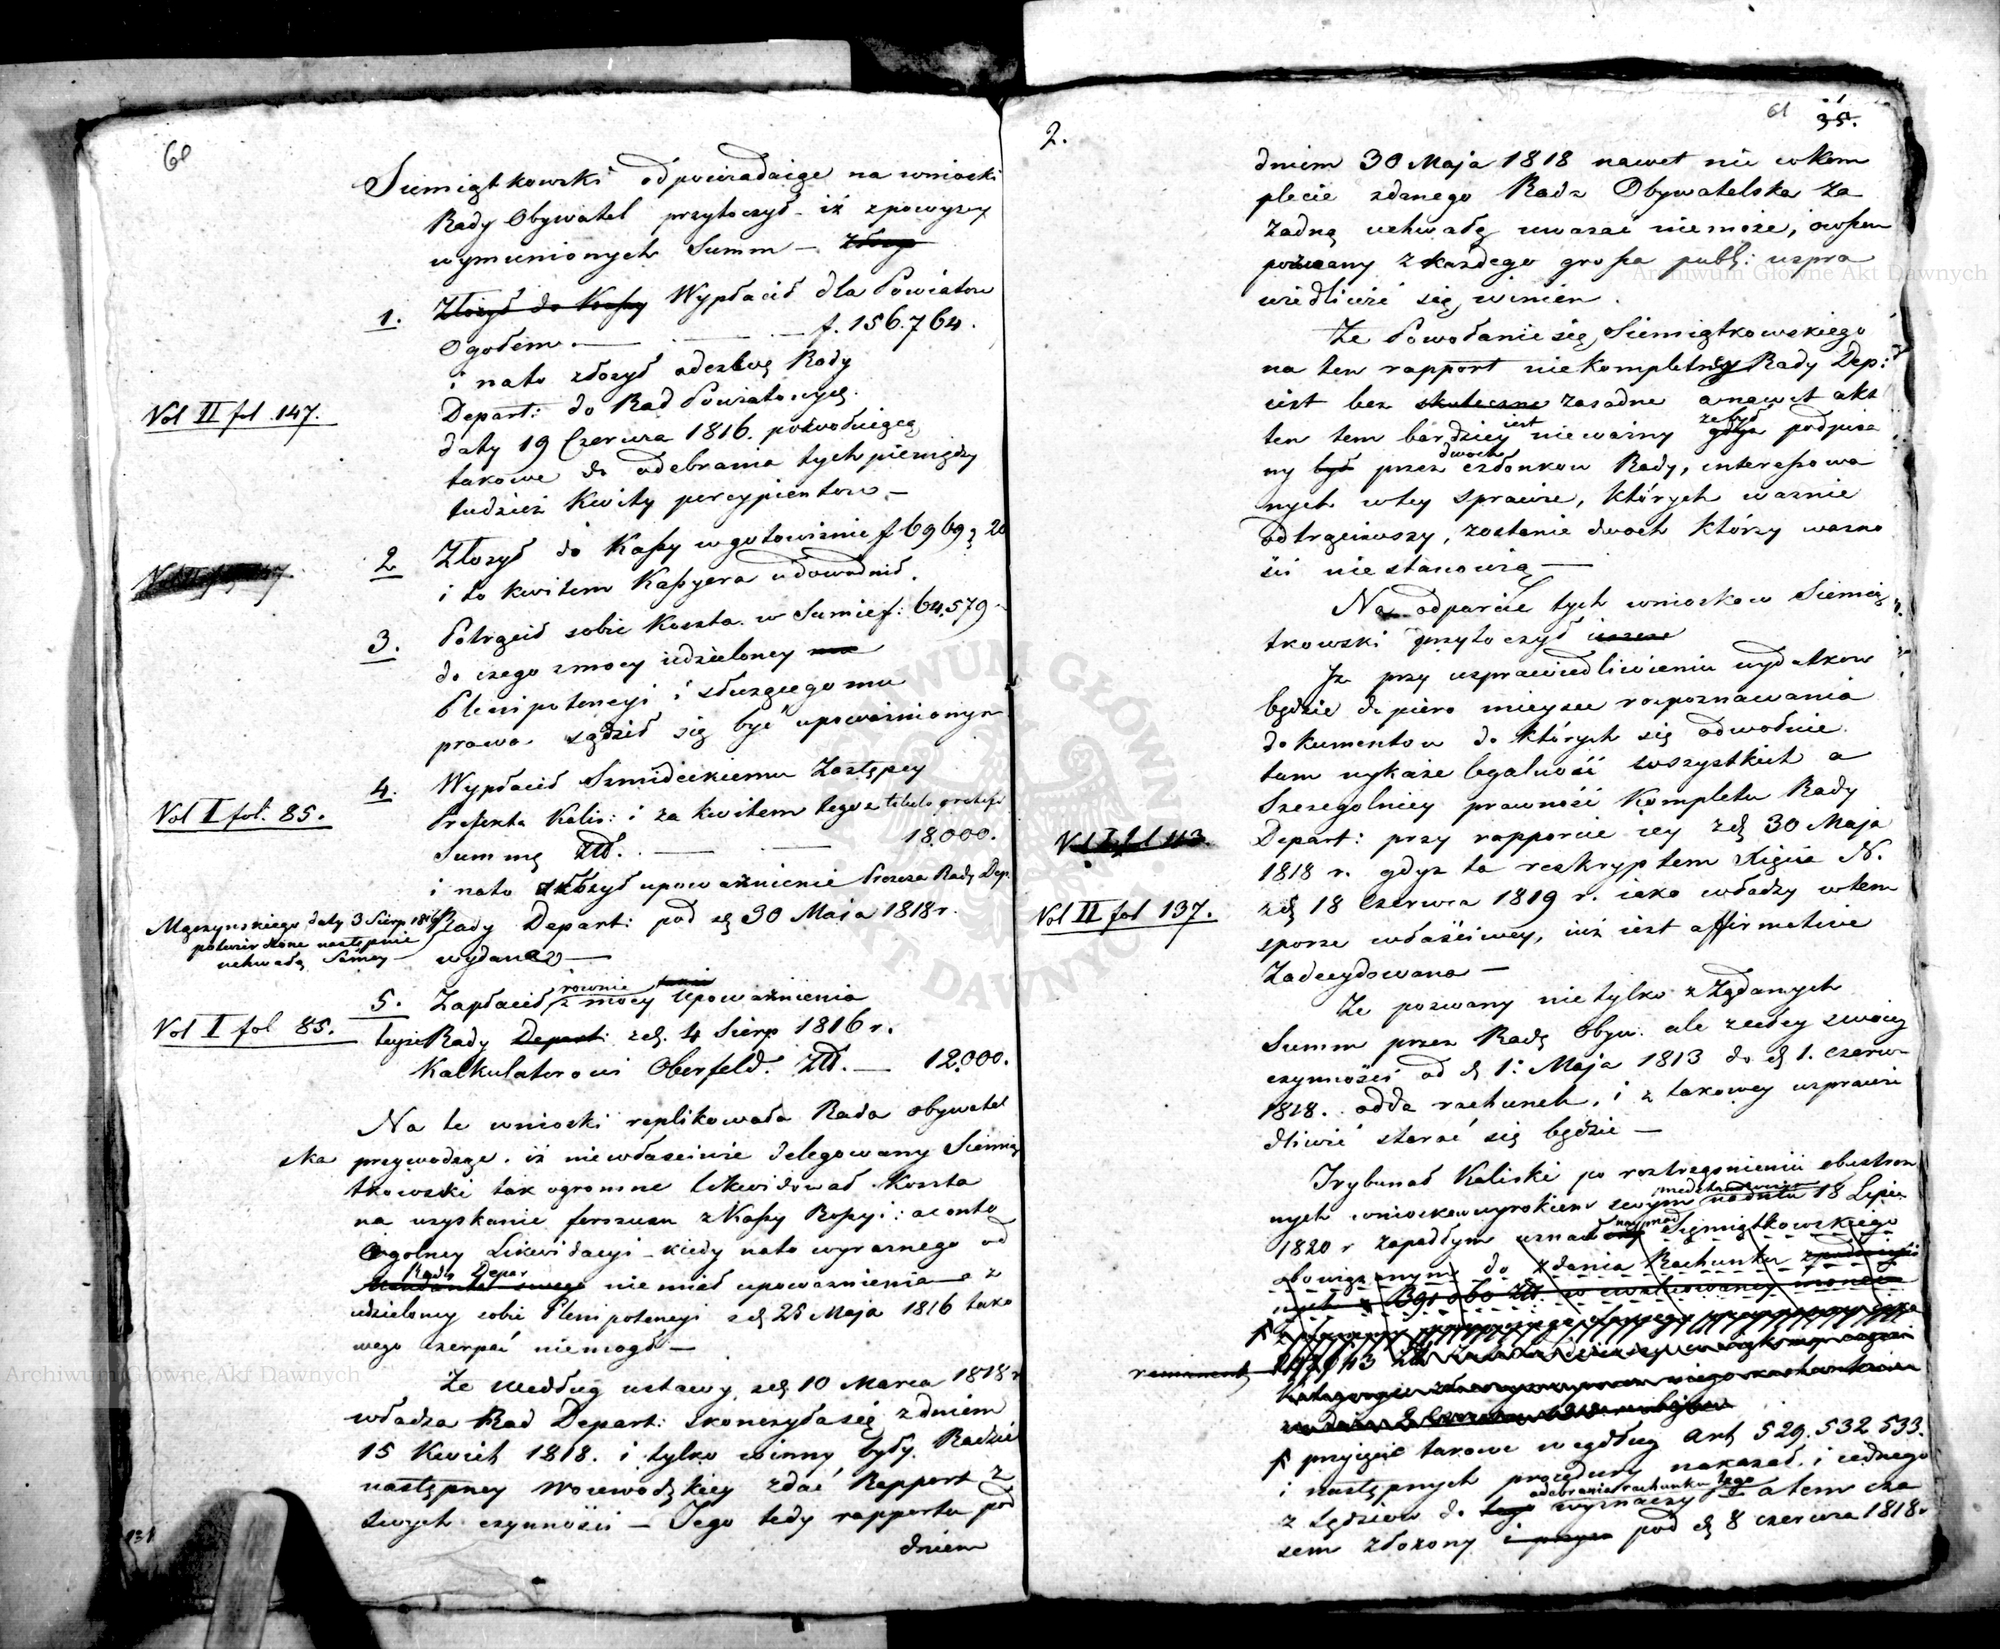 60
Siemiątkowski odpowiadaiąc na wnioski
Rady Obywatel przytoczył – iż z powyzey
wymienionych Summ –
1. Złożył do Kassy Wypłacił dla Powiatow
Ogołem — — f. 156.764.
i na to złożył odezwę Rady
Depart: do Rad Powiatowych
Vol II fol. 147.
daty 19 Czerwca 1816. pozwolaiącą
takowe do odebrania tych pieniędzy
tudzież Kwity percypientow –
2 Złożył do Kassy w gotowiznie f 6969 20
i to kwitem Kassyera udowodnił.
3. Potrącił sobie Koszta w Sumie f: 64,579
do czego z mocy udzieloney
Plenipotencyi i słuzącego mu
prawa sądził się być upoważnionym
4. Wypłacił Szmideckiemu Zastępcy
Vol I fol. 85.
Prefekta Kalis: i za kwitem tegoz titulo gratifi
Summę Złł. — — 18.000.
i na to złożył upoważnienie Prezesa Rady Dep.
Mączynskiego daty 3 Sierp 1816
potwierdzone następnie
uchwałą Samey
Rady Depart: pod d 30 Maja 1818 r.
wydane —
5. Zapłacił równie z mocy Upoważnienia
Vol I fol 85.
teyże Rady Depart: z d. 4 Sierp 1816 r.
Kalkulatorowi Oberfeld. Złł. — 12.000.
Na te wnioski replikowała Rada obywatel
ska przywodząc. iż niewłasciwie delegowany Siemią
tkowski tak ogromne likwidował Koszta
na uzyskanie forszusu z Kassy Rossyi: a conto
Ogolney Likwidacyi – kiedy na to wyraznego od
Rady Depar
Mandanta swego nie miał upoważnienia a z
udzieloney sobie Plenipotencyi z d 25 Maja 1816 tako
wego czerpać nie mogł —
Ze według ustawy z d 10 Marca 1818 r
władza Rad Depart: skonczyła się z dniem
15 Kwiet 1818. i tylko winny były Radzie
następney Woiewodzkiey zdać Rapport z
swych czynności – Tego tedy rapportu pod
dniem
2.
61
35.
dniem 30 Maja 1818 nawet nie w kom
plecie zdanego Rada Obywatelska za
zadną uchwałę uwazać nie może, owszem
pozwany z każdego grosza publ: uspra
wiedliwić się winien.
Ze Powołanie się Siemiątkowskiego
na ten rapport niekompletney Rady Dep:
iest bez skuteczne zasadne a nawet akt
ten tem bardziey iest nieważny że był gdyż podpisa
ny był przez dwoch członkow Rady, interessowa
nych w tey sprawie, których waznie
odtrąciwszy, zostanie dwoch którzy wazno
ści nie stanowią —
Na odparcie tych wnioskow Siemią
tkowski przytoczył
Iz przy usprawiedliwieniu wydatkow
będzie dopiero mieysce rozpoznawania
dokumentow do których się odwołuie
tam wykaże legalność wszystkich a
Szczegolniey prawność Kompletu Rady
Vol I fol 113.
Depart: przy rapporcie iey z d 30 Maja
1818 r. gdyz ta reskryptem Xięcia N.
Vol II fol 137.
z d 18 Czerwca 1819 r. iako władzy w tem
sporze właściwey, iuż iest affirmative
Zadecydowana —
Ze pozwany nie tylko z Ządanych
Summ przez Radę Obyw. ale z całey swoiey
czynności od d 1: Maja 1813 do d 1. czerw
1818. odda rachunek, i z takowey usprawie
dliwić starać się będzie —
Trybunał Kaliski po roztrząśnieniu obustron
nych wnioskow wyrokiem swym na dniu 18 Lipca
1820 r zapadłym uznał Siemiątkowskiego
obowiązanym do zdania Rachunku
remanent
przyięcie takowe według Art 529. 532 533.
i następnych procedury nakazał. i iednego
z sędziow do odebrania rachunku tego wyznaczy a tem cza
sem złożony i przez pod d 8 czerwca 1818 r
Archiwum Główne Akt Dawnych
Archiwum Główne Akt Dawnych
ARCHIWUM GŁÓWNE AKT DAWNYCH